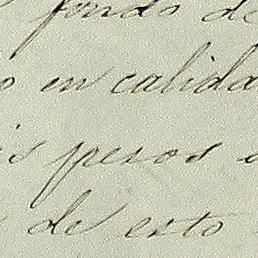 fondo de
o en calida
is pesos a
de esto